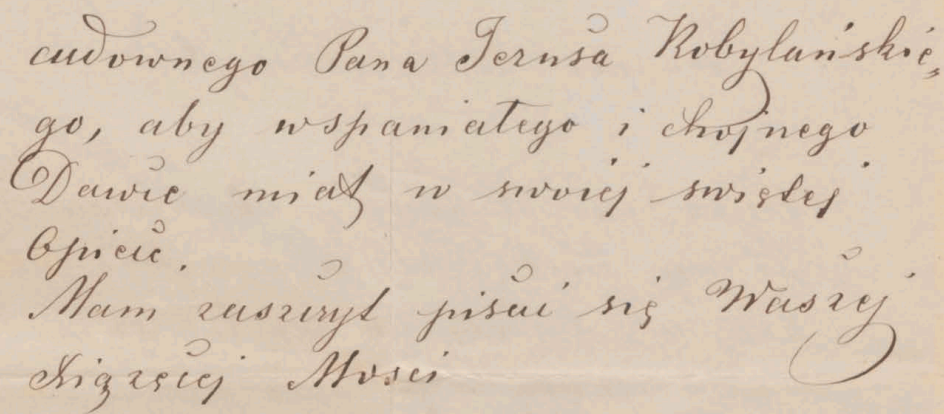 cudownego Pana Jezusa Kobylańskie„
go, aby wspaniałego i chojnego
Dawce miał w swojej swiętej
Opiece.
Mam zaszczyt pisać się Waszej
Xiążęcej Mosci